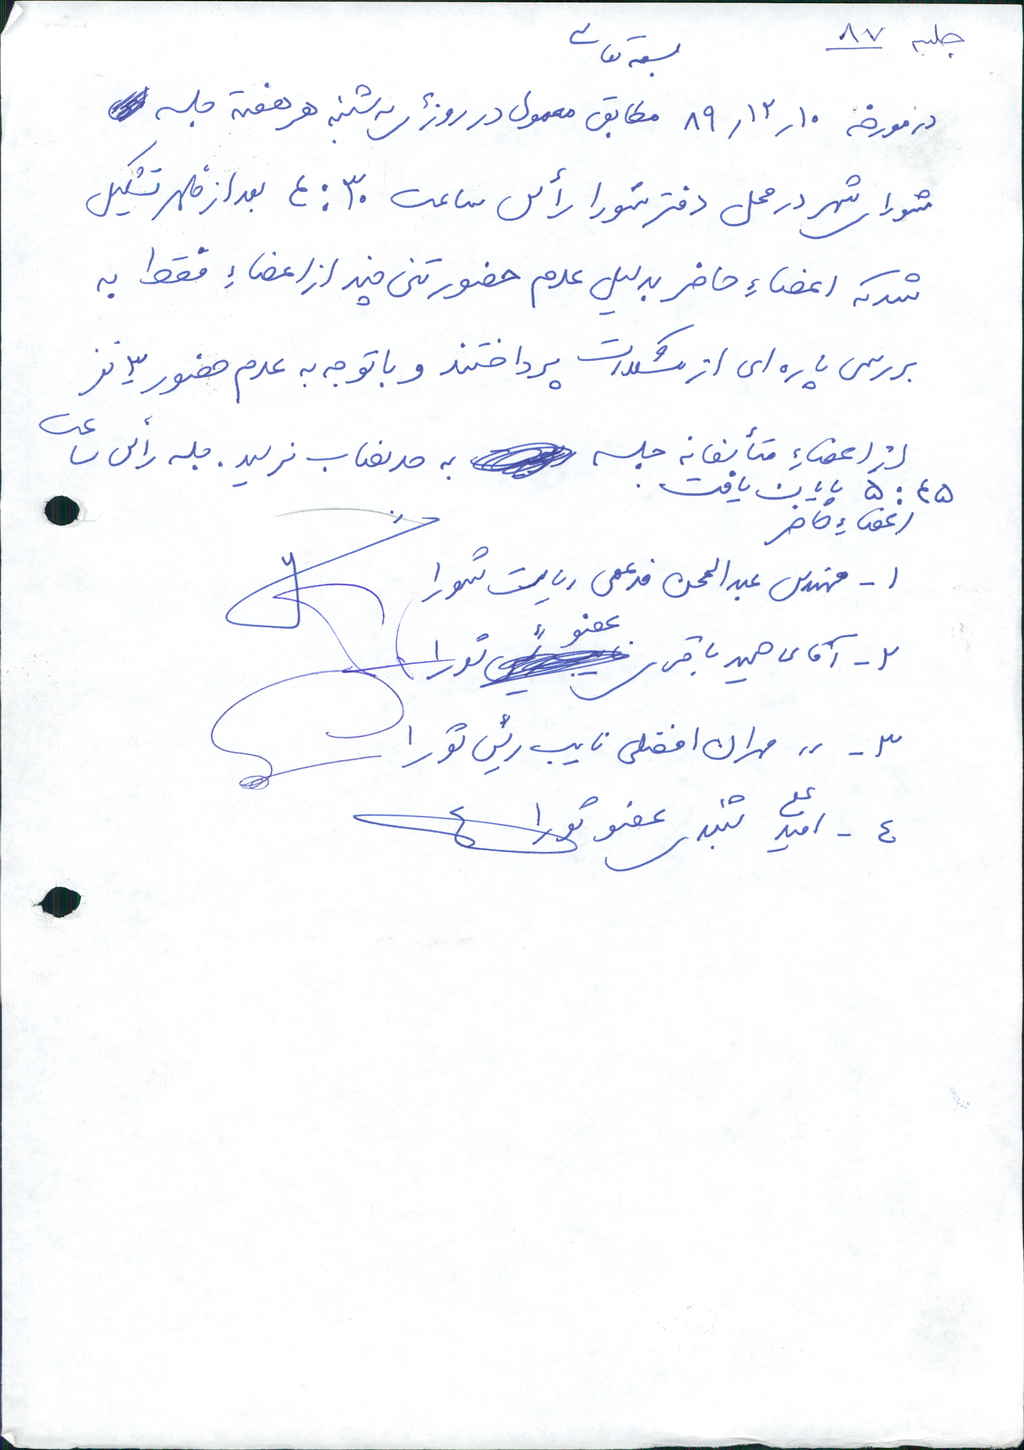 جلسه ۸۷
بسمه تعالی
در مورخه ۱۰ر۱۲ر۸۹ مطابق معمول در روزهای سه شنبه هر هفته جلسه
شورای شهر در محل دفتر شورا رأس ساعت ۴:۳۰ بعد از ظهر تشکیل
شد که اعضاءِ حاضر بدلیل عدم حضور تنی چند از اعضاءِ فقط به
بررسی پاره ای از مشکلات پرداختند و با توجه به عدم حضور ۳ نفر
از اعضاءِ متأسفانه جلسه به حد نصاب نرسید. جلسه رأس ساعت
۵:۴۵ پایان یافت.
اعضاءِ حاضر
۱- مهندس عبدالمحمد ریاست شورا
۲- آقای حمید باقری عضو شورا
۳- 〃 مهران افضلی نایب رئیس شورا
۴- امید علی عضو شورا